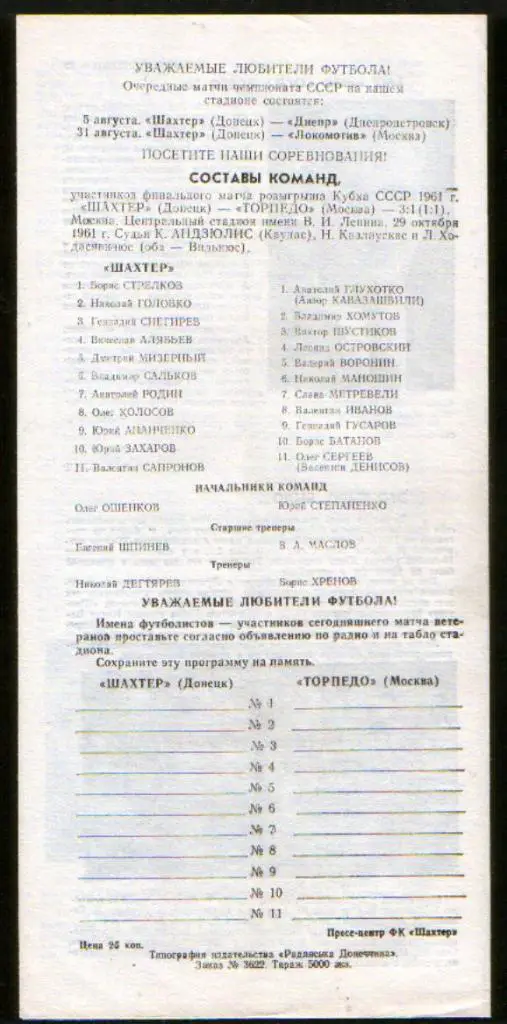 УВАЖАЕМЫЕ ЛЮБИТЕЛИ ФУТБОЛА!
Очередные матчи чемпионата СССР на нашем
стадионе состоятся:
5 августа. «Шахтер» (Донецк) — «Днепр» (Днепропетровск)
31 августа. «Шахтер» (Донецк) — «Локомотив» (Москва)
ПОСЕТИТЕ НАШИ СОРЕВНОВАНИЯ!
СОСТАВЫ КОМАНД,
участников финального матча розыгрыша Кубка СССР 1961 г.
«ШАХТЕР» (Донецк) — «ТОРПЕДО» (Москва) — 3:1 (1:1),
Москва, Центральный стадион имени В. И. Ленина, 29 октября
1961 г. Судьи К. АНДЗЮЛИС (Каунас), Н. Казлаускас и Л. Хо-
дасявичюс (оба — Вильнюс).
«ШАХТЕР»
1. Борис СТРЕЛКОВ
2. Николай ГОЛОВКО
3. Геннадий СНЕГИРЕВ
4. Вячеслав АЛЯБЬЕВ
5. Дмитрий МИЗЕРНЫЙ
6. Владимир САЛЬКОВ
7. Анатолий РОДИН
8. Олег КОЛОСОВ
9. Юрий АНАНЧЕНКО
10. Юрий ЗАХАРОВ
11. Валентин САПРОНОВ
1. Анатолий ГЛУХОТКО
(Анзор КАВАЗАШВИЛИ)
2. Владимир ХОМУТОВ
3. Виктор ШУСТИКОВ
4. Леонид ОСТРОВСКИЙ
5. Валерий ВОРОНИН
6. Николай МАНОШИН
7. Слава МЕТРЕВЕЛИ
8. Валентин ИВАНОВ
9. Геннадий ГУСАРОВ
10. Борис БАТАНОВ
11. Олег СЕРГЕЕВ
(Валентин ДЕНИСОВ)
НАЧАЛЬНИКИ КОМАНД
Олег ОШЕНКОВ Юрий СТЕПАНЕНКО
Старшие тренеры
Евгений ШПИНЕВ В. А. МАСЛОВ
Тренеры
Николай ДЕГТЯРЕВ Борис ХРЕНОВ
УВАЖАЕМЫЕ ЛЮБИТЕЛИ ФУТБОЛА!
Имена футболистов — участников сегодняшнего матча вете-
ранов проставьте согласно объявлению по радио и на табло ста-
диона.
Сохраните эту программу на память.
«ШАХТЕР» (Донецк) «ТОРПЕДО» (Москва)
№ 1
№ 2
№ 3
№ 4
№ 5
№ 6
№ 7
№ 8
№ 9
№ 10
№ 11
Пресс-центр ФК «Шахтер»
Цена 25 коп.
Типография издательства «Радянська Донеччина».
Заказ № 3622. Тираж 5000 экз.